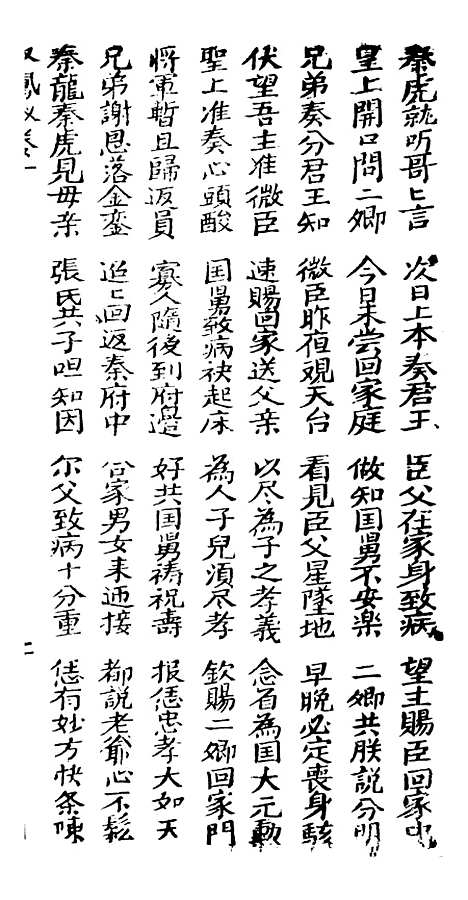 秦虎就听哥〻言 次日上本奏君王 臣父在家身致病 望主賜臣回家中
皇上開口問二卿 今日未尝回家庭 做知囯舅不安楽 二卿共朕説分明
兄弟奏分君王知 微臣昨夜观天台 看見臣父星墜地 早晚必定喪身骸
伏望吾主准微臣 速賜回家送父亲 以尽為子之孝義 念旨為囯大元勳
聖上准奏心頭酸 囯舅致病袂起床 為人子兒須尽孝 欽賜二卿回家門
將軍暫且歸返員 寡人隨後到府邉 好共囯舅祷祝壽 报恁忠孝大如天
兄弟謝恩落金銮 迢〻回返秦府中 合家男女来迊接 都説老爺心不鬆
秦龍秦虎見母亲 張氏共子呾知因 尔父致病十分重 恁有妙方快条陳
二